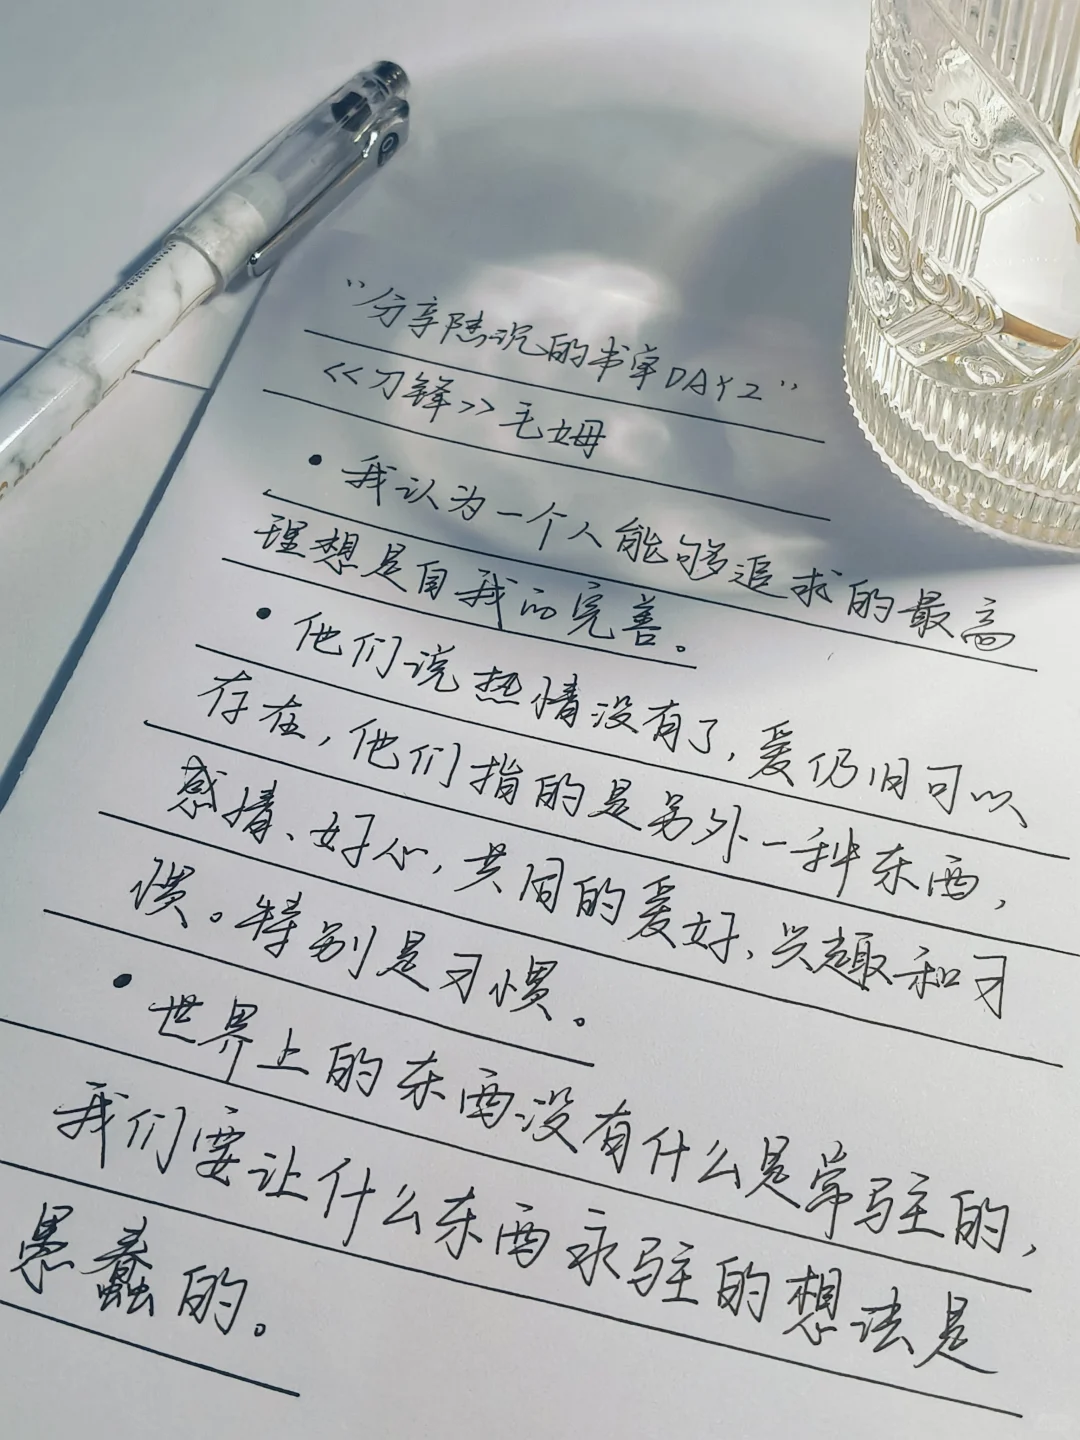 “分享陆沉的书单DAY2”
<<刀锋>>毛姆
• 我认为一个人能够追求的最高
理想是自我的完善。
• 他们说热情没有了,爱仍旧可以
存在,他们指的是另外一种东西,
感情、好心,共同的爱好、兴趣和习
惯。特别是习惯。
• 世界上的东西没有什么是常驻的,
我们要让什么东西永驻的想法是
愚蠢的。